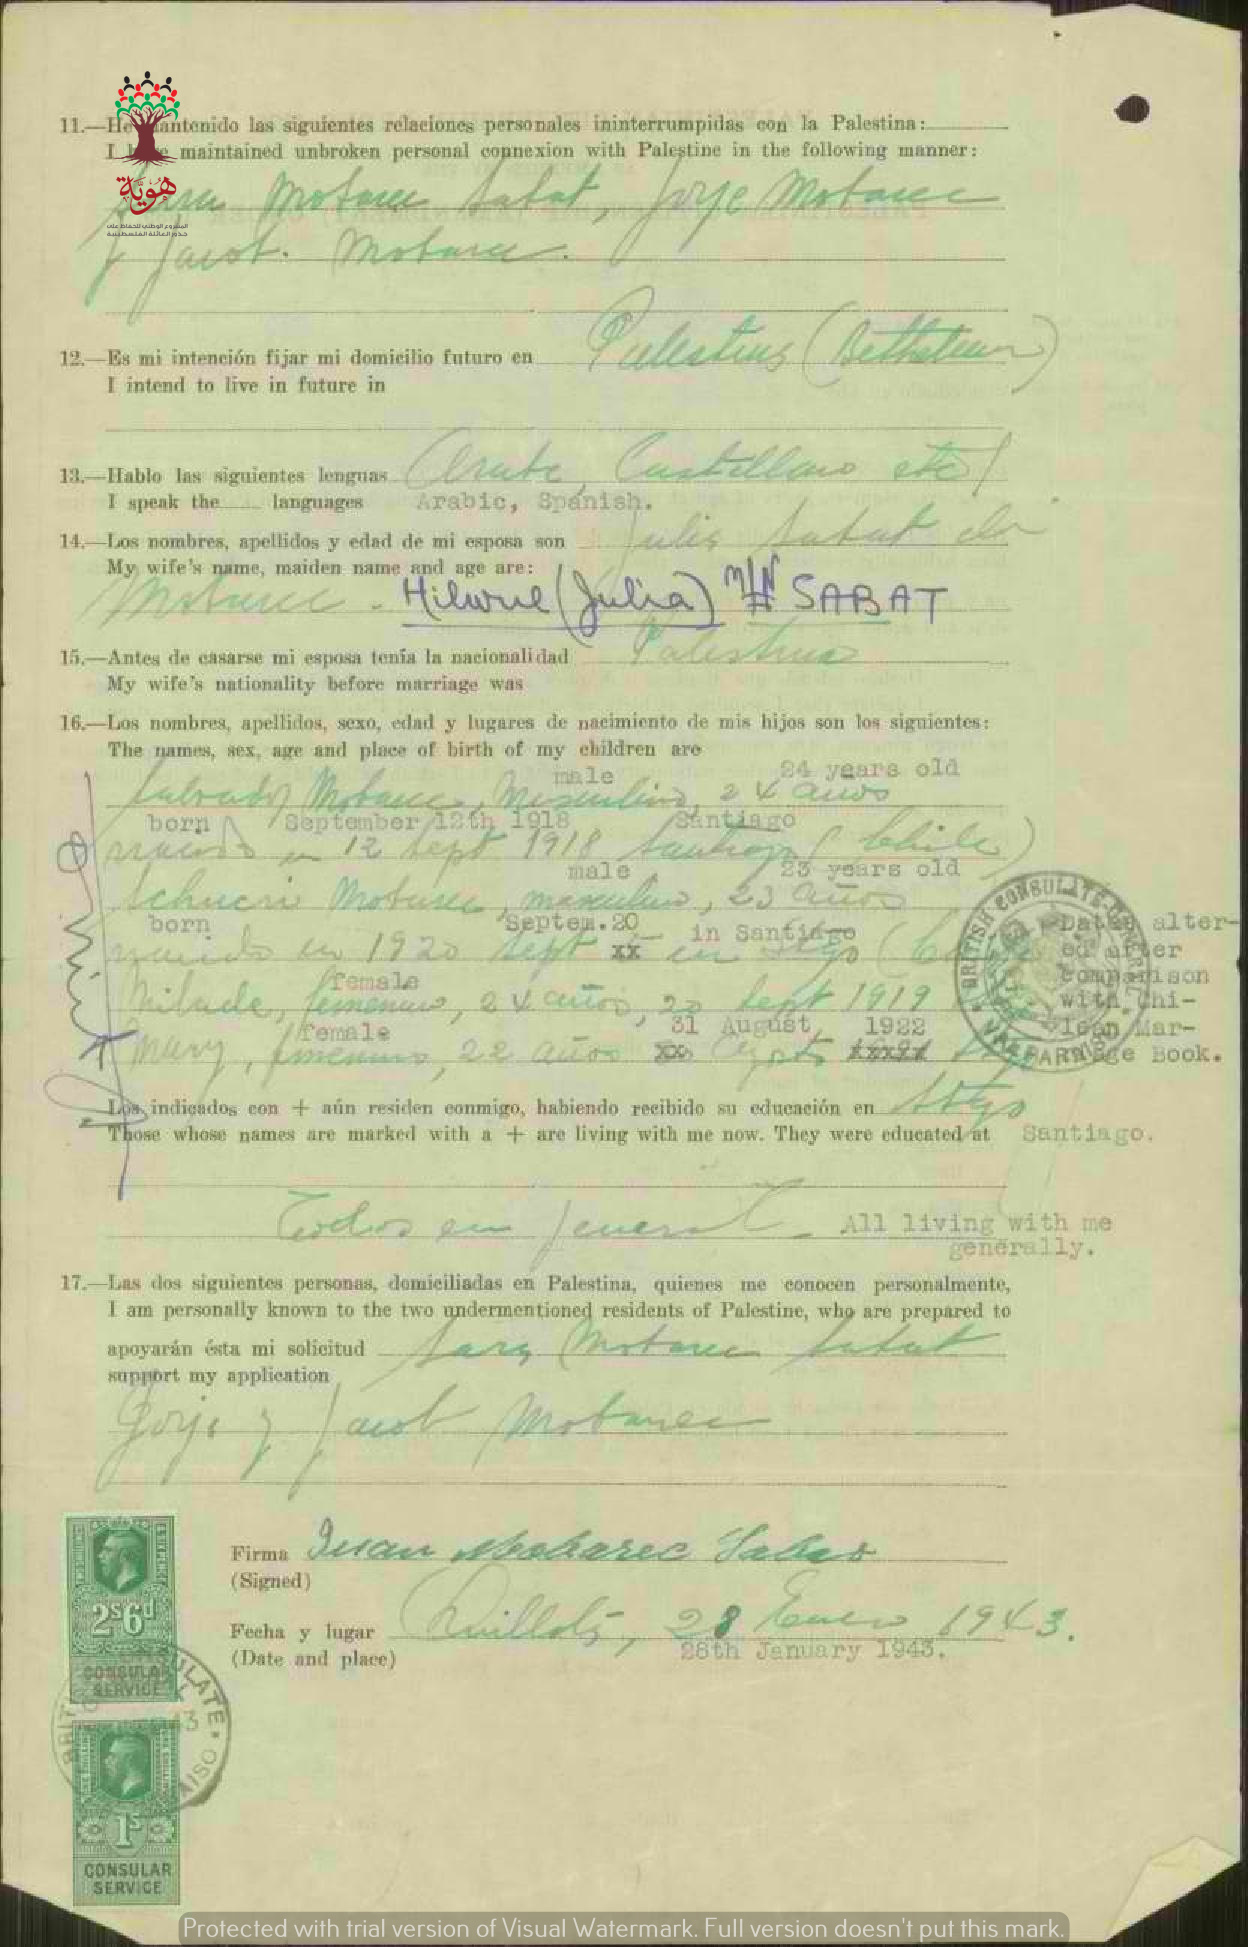 11.—He mantenido las siguientes relaciones personales ininterrumpidas con la Palestina:
I have maintained unbroken personal connexion with Palestine in the following manner:
هوية
المشروع الوطني للحفاظ على
جذور العائلة الفلسطينية
Sara Mobarec Sabat, Jorje Mobarec
y Jacob. Mobarec.
12.—Es mi intención fijar mi domicilio futuro en Palestina (Bethelem)
I intend to live in future in
13.—Hablo las siguientes lenguas Arabe, Castellano etc
I speak the languages Arabic, Spanish.
14.—Los nombres, apellidos y edad de mi esposa son Julia Sabat de
My wife's name, maiden name and age are:
Mobarec. Hilwue (Julia) SABAT
15.—Antes de casarse mi esposa tenía la nacionalidad Palestina
My wife's nationality before marriage was
16.—Los nombres, apellidos, sexo, edad y lugares de nacimiento de mis hijos son los siguientes:
The names, sex, age and place of birth of my children are
male 24 years old
Salvador Mobarec, Masculino, 24 años
born September 12th 1918 Santiago
nacido en 12 Sept 1918 Santiago (Chile)
male 23 years old
Schucri Mobarec, masculino, 23 años
born Septem. 20 in Santiago
nacido en 1920 Sept xx en Stgo
female
Milade, femenino, 24 años, 20 Sept 1919
female 31 August, 1922
Mary, femenino, 22 años xx Agosto xxxxx
Dates altered after comparison with Chilean Marriage Book.
BRITISH CONSULATE-GENERAL
VALPARAISO
Los indicados con + aún residen conmigo, habiendo recibido su educación en Stgo
Those whose names are marked with a + are living with me now. They were educated at Santiago.
Todos en jeneral All living with me
generally.
17.—Las dos siguientes personas, domiciliadas en Palestina, quienes me conocen personalmente,
I am personally known to the two undermentioned residents of Palestine, who are prepared to
apoyarán ésta mi solicitud Sara Mobarec Sabat
support my application
Jorje y Jacob Mobarec
Firma Juan Mobarec Sabat
(Signed)
Fecha y lugar Quillota, 28 Enero 1943.
(Date and place) 28th January 1943.
2s6d
CONSULAR
SERVICE
1s
CONSULAR
SERVICE
Protected with trial version of Visual Watermark. Full version doesn't put this mark.